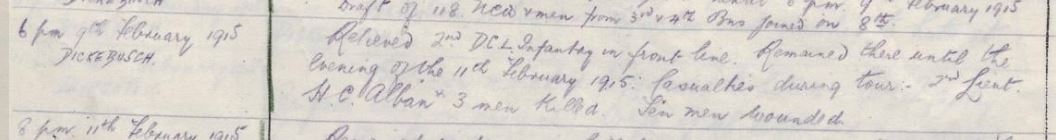 DICKEBUSCH
Draft of 118. NCO & men from 3rd & 4th Bns joined on 8th.
6 pm 9th February 1915
DICKEBUSCH.
Relieved 2nd DCL Infantry in front line. Remained there until the
Evening of the 11th February 1915: Casualties during tour:- 2nd Lieut.
H. C. Alban & 3 men Killed. Ten men wounded.
8 pm. 11th February 1915